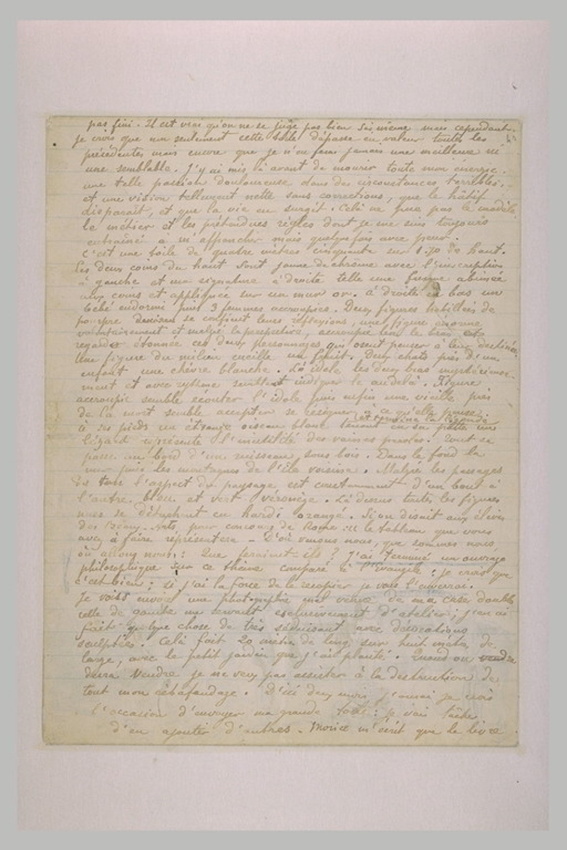 pas fini. Il est vrai qu'on ne se juge pas bien soi-même mais cependant
je crois que non seulement cette toile dépasse en valeur toutes les
précédentes mais encore que je n'en ferai jamais une meilleure ni
une semblable. J'y ai mis là avant de mourir toute mon énergie
une telle passion douloureuse dans des circonstances terribles,
et une vision tellement nette sans corrections, que le hâtif
disparaît, et que la vie en surgit. Celà ne pue pas le modèle,
le métier et les prétendues règles dont je me suis toujours
à m'affranchir mais quelquefois avec peur.
C'est une toile de quatre mètres cinquante sur 1.70 de haut.
Les deux coins du haut sont jaune de chrome avec l'inscription
à gauche et ma signature à droite telle une fresque abimée
aux coins et appliquée sur un mur or. à droite en bas un
bébé endormi puis 3 femmes accroupies. Deux figures habillées de
pourpre se confient leurs réflexions, une figure énorme
volontairement et malgré la perspective, accroupie lève le bras et
regarde étonnée ces deux personnages qui osent penser à leur destinée.
Une figure du milieu cueille un fruit. Deux chats près d'un
enfant une chèvre blanche. L'idole les deux bras mystérieuse-
ment et avec rythme semble indiquer le au delà. Figure
accroupie semble écouter l'idole puis enfin une vieille près
de la mort semble accepter se résigner à ce qu'elle pense
et termine la légende
à ses pieds un étrange oiseau blanc tenant en sa patte un
lézard représente l'inutilité des vaines paroles. Tout se
passe au bord d'un ruisseau sous bois. Dans le fond la
mer puis les montagnes de l'île voisine. Malgré les passages
de tons l'aspect du paysage est constamment d'un bout à
l'autre bleu et vert véronèse. Là dessus toutes les figures
nues se détachent en hardi orangé. Si on disait aux élèves
des Beaux-Arts pour concours de Rome le tableau que vous
avez à faire représentera – D'où venons nous, que sommes nous
où allons nous: Que feraient ils? J'ai terminé un ouvrage
philosophique sur ce thème comparé à l'évangile: je crois que
c'est bien: si j'ai la force de le recopier je vous l'enverrai.
Je vous envoie une photographie mal venue de ma case double,
celle de gauche me servant exclusivement d'atelier; j'en ai
fait quelque chose de très séduisant avec décorations
sculptées. Celà fait 20 mètres de long sur huit mètres de
large, avec le petit jardin que j'ai planté.
devra vendre je ne veux pas assister à la destruction de
tout mon échafaudage. D'ici deux mois j'aurai je crois
l'occasion d'envoyer ma grande toile: je vais tâcher
d'en ajouter d'autres. Morice m'écrit que le livre